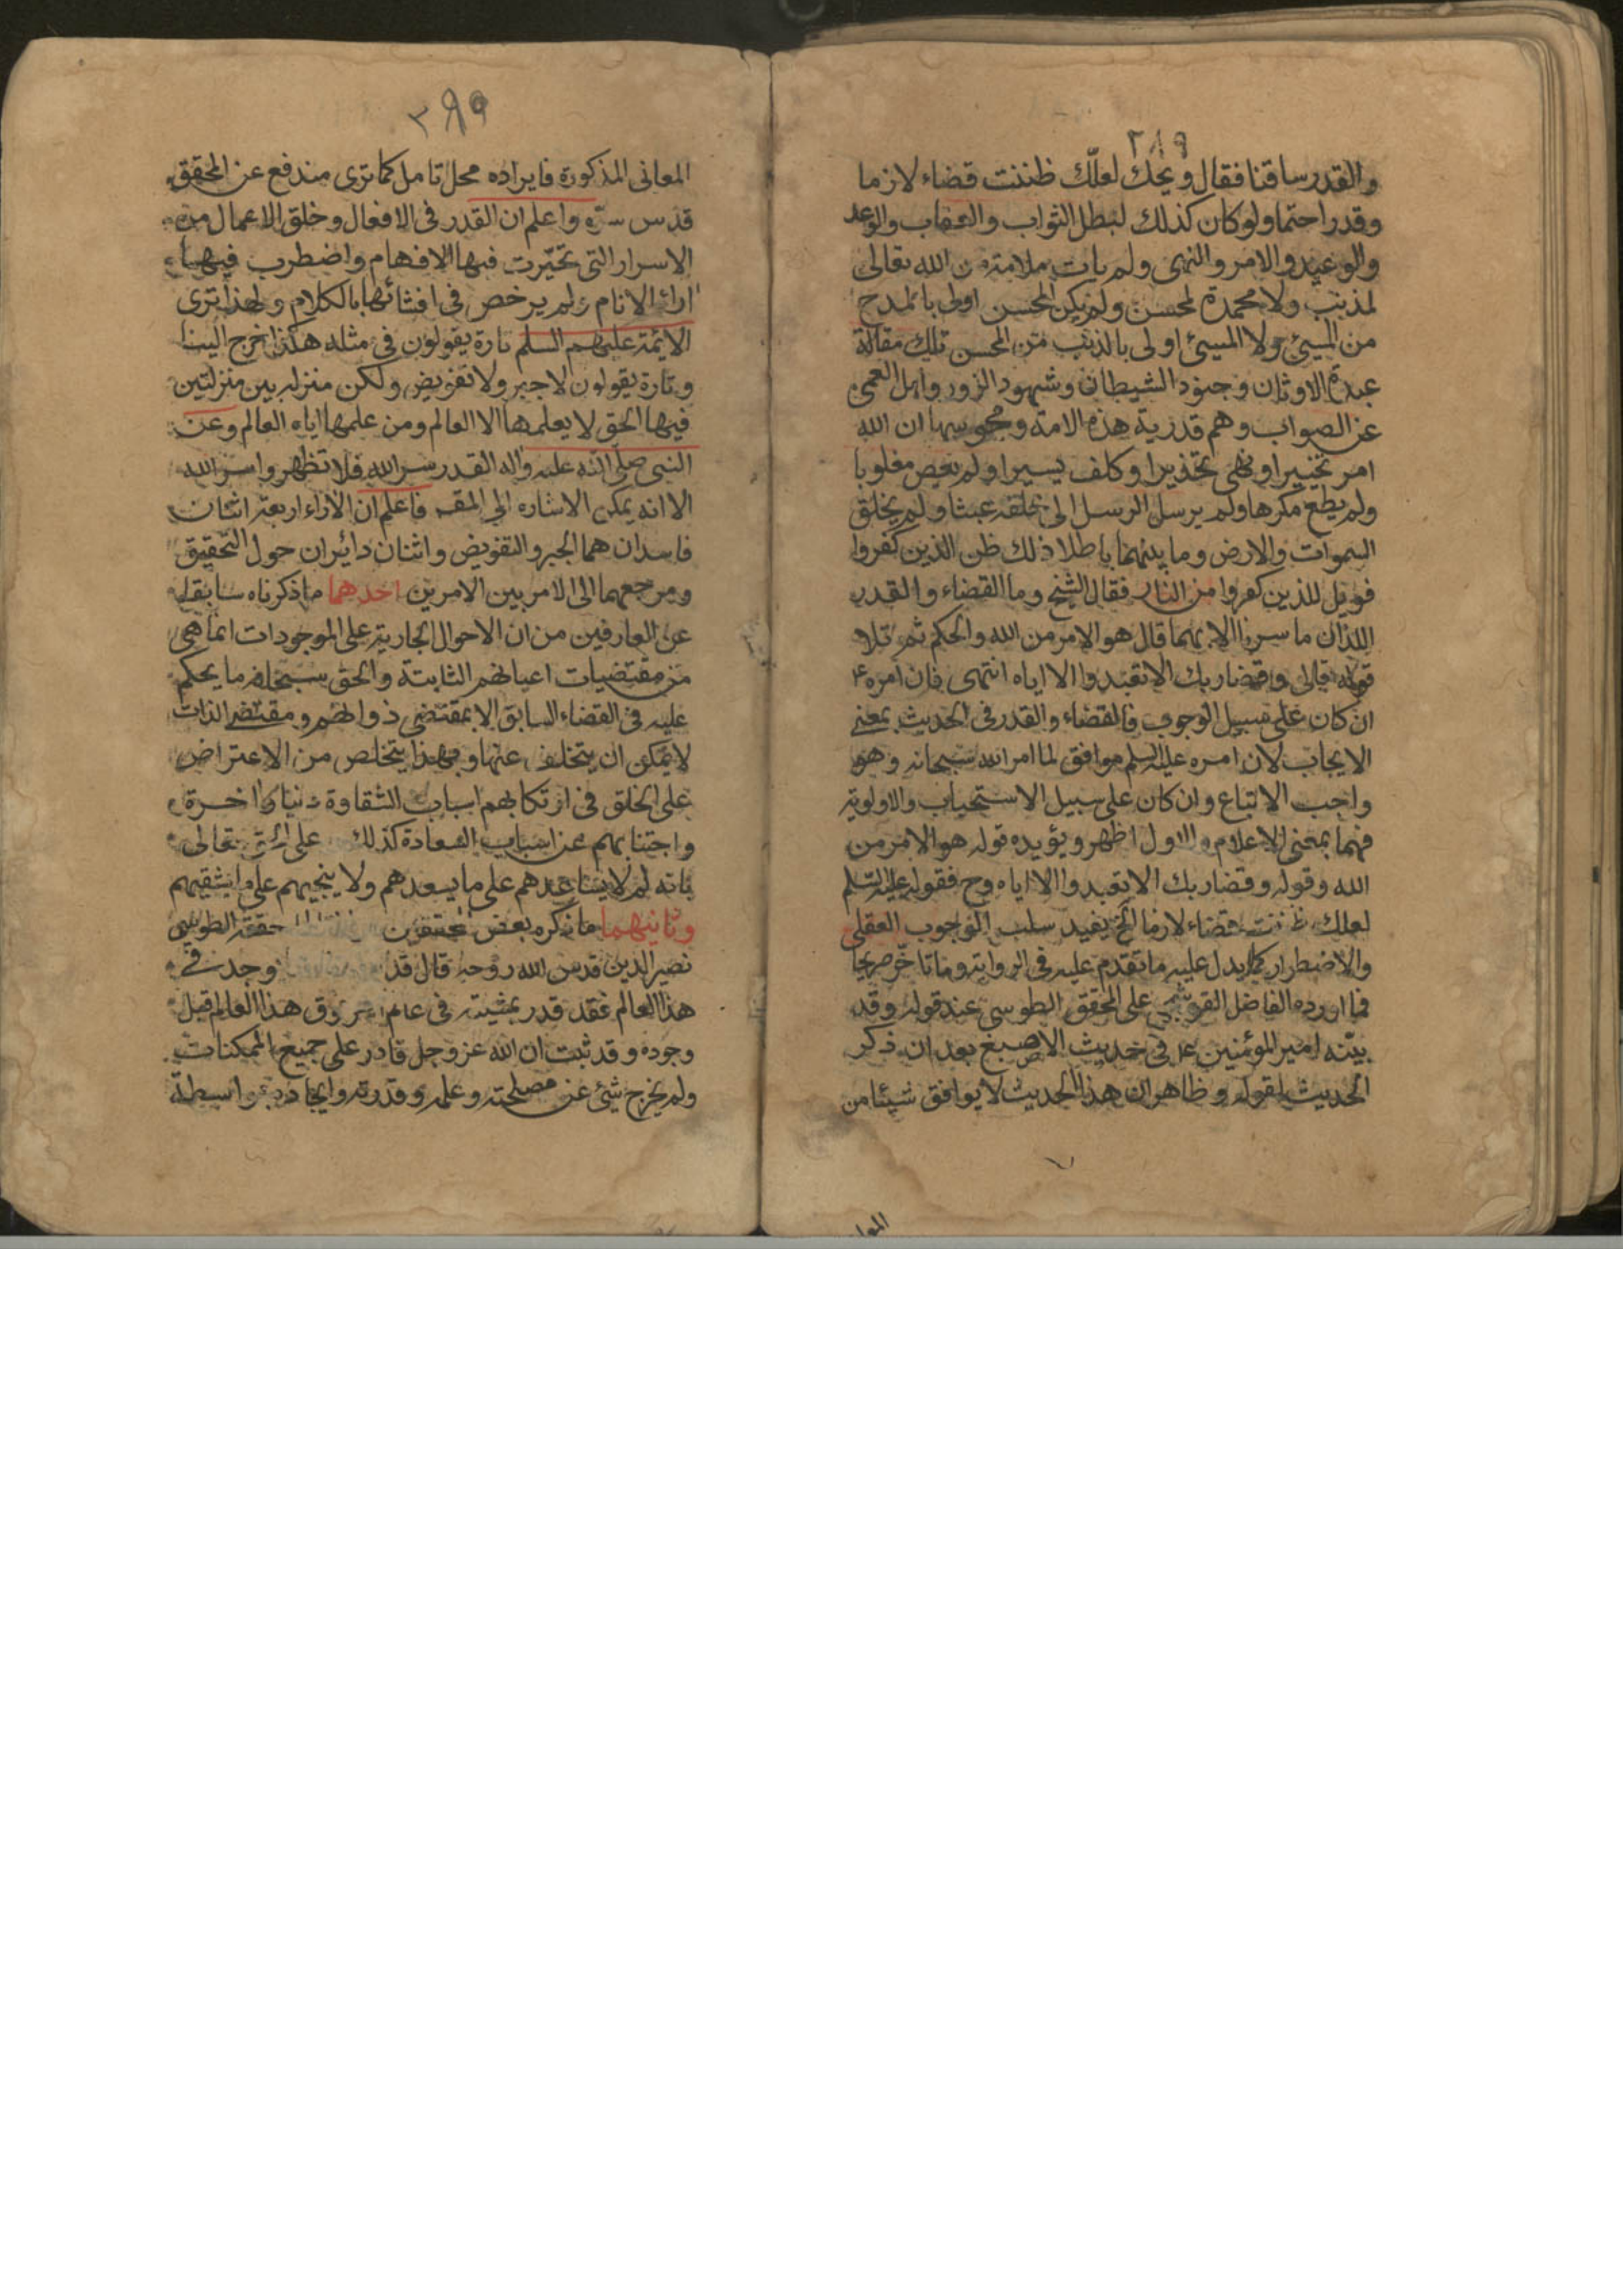 ٢٨٩
والقدر ساقنا فقال ويحك لعلّك ظننت قضاء لازما
وقدرا حتما ولو كان كذلك لبطل الثواب والعقاب والوعد
والوعيد والامر والنهى ولم يات ملامة من الله تعالى
لمذنب ولا محمدة لمحسن ولم يكن المحسن اولى بالمدح
من المسيئ ولا المسيئ اولى بالذنب من المحسن تلك مقالة
عبدة الاوثان وجنود الشيطان وشهود الزور واهل العمى
عن الصواب وهم قدرية هذه الامة ومجوسها ان الله
امر تخييرا ونهى تحذيرا وكلف يسيرا ولم يعص مغلوبا
ولم يطع مكرها ولم يرسل الرسل الى خلقه عبثا ولم يخلق
السموات والارض وما بينهما باطلا ذلك ظن الذين كفروا
فويل للذين كفروا من النار فقال الشيخ وما القضاء والقدر
اللذان ما سرنا الا بهما قال هو الامر من الله والحكم ثم تلا
قوله تعالى وقضا ربك الا تعبدوا الا اياه انتهى فان امره ع
ان كان على سبيل الوجوب فالقضاء والقدر فى الحديث بمعنى
الايجاب لان امره عليه السلم موافق لما امر الله سبحانه وهو
واجب الاتباع وان كان على سبيل الاستحباب والاولوية
فهما بمعنى الاعلام والاول اظهر ويؤيده قوله هو الامر من
الله وقوله وقضا ربك الا تعبدوا الا اياه وح فقوله عليه السلم
لعلك ظننت قضاء لازما الخ يفيد سلب الوجوب العقلى
والاضطرار كما يدل عليه ما تقدم عليه فى الرواية وما تاخر صريحا
فما اورده الفاضل القوشجى على المحقق الطوسى عند قوله وقد
بيّنه امير المؤمنين ع فى حديث الاصبغ بعد ان ذكر
الحديث بقوله وظاهر ان هذا الحديث لا يوافق شيئا من
٢٨٩
المعانى المذكورة فايراده محل تامل كما ترى مندفع عن المحقق
قدس سرّه واعلم ان القدر فى الافعال وخلق الاعمال من
الاسرار التى تحيّرت فيها الافهام واضطرب فيها
اراء الانام ولم يرخص فى افشائها بالكلام ولهذا ترى
الائمة عليهم السلم تارة يقولون فى مثله هكذا خرج الينا
وتارة يقولون لا جبر ولا تفويض ولكن منزلة بين منزلتين
فيها الحق لا يعلمها الا العالم ومن علمها اياه العالم وعن
النبى صلى الله عليه واله القدر سر الله فلا تظهروا سر الله
الا انه يمكن الاشاره الى المقصد فاعلم ان الاراء اربعة اثنان
فاسدان هما الجبر والتفويض واثنان دائران حول التحقيق
ومرجعهما الى الامر بين الامرين احدهما ما ذكرناه سابقا
عن العارفين من ان الاحوال الجارية على الموجودات انما هى
من مقتضيات اعيانهم الثابتة والحق سبحانه ما يحكم
عليه فى القضاء السابق الا بمقتضى ذواتهم ومقتضى الذات
لا يمكن ان يتخلف عنها وبهذا يتخلص من الاعتراض
على الخلق فى ارتكابهم اسباب الشقاوة دنيا واخرة
واجتنابهم عن اسباب السعادة كذلك على تعالى
بانه لم لا يساعدهم على ما يسعدهم ولا ينجيهم على ما يشقيهم
وثانيهما ما ذكره بعض المحققين حققه الطوسى
نصير الدين قدس الله روحه قال قد وجد فى
هذا العالم فقد قدر بمشيته فى عالم فوق هذا العالم قبل
وجوده وقد ثبت ان الله عز وجل قادر على جميع الممكنات
ولم يخرج شئ عن مصلحته وعلمه وقدرته وايجاده بواسطة